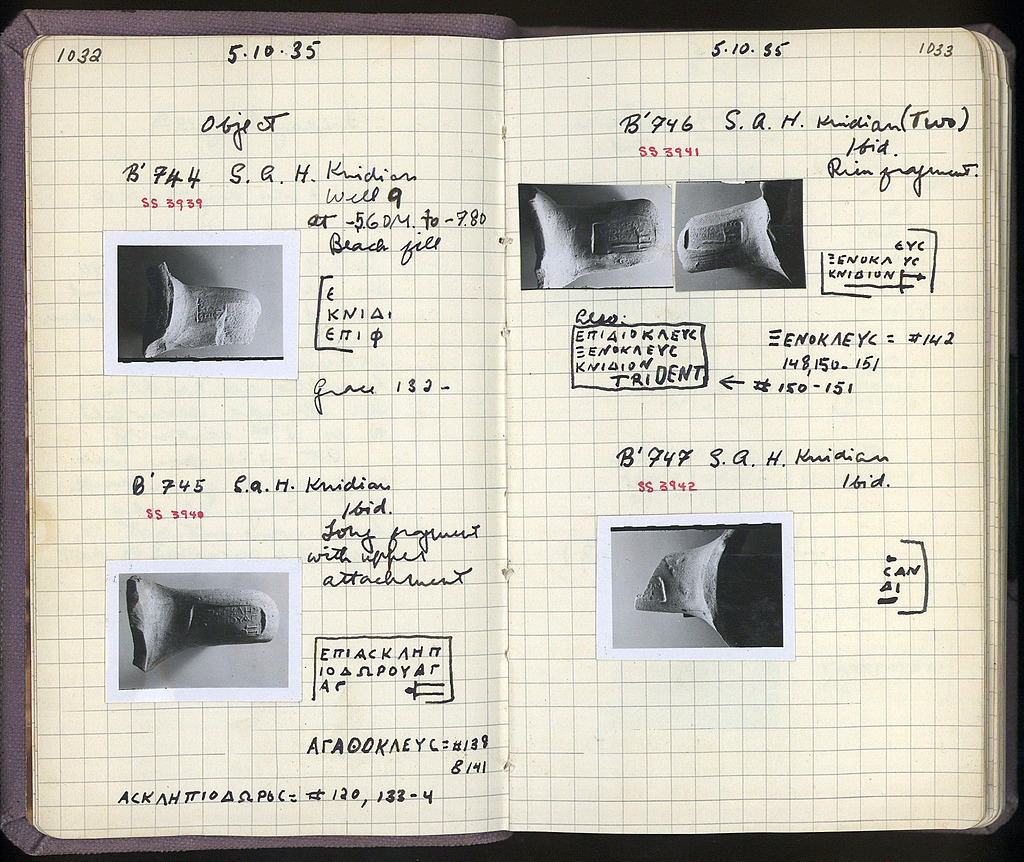 1032
5·10·35
Object
B'744 S.A.H. Knidian
SS 3939
Well 9
at -5.60M. to -7.80
Beach fill
Ε
ΚΝΙΔΙ
ΕΠΙΦ
Grace 132-
B'745 S.A.H. Knidian
SS 3940
Ibid.
Long fragment
with upper
attachment
ΕΠΙΑϹΚΛΗΠ
ΙΟΔΩΡΟΥΑΓ
ΑΓ
ΑΓΑΘΟΚΛΕΥϹ = #138
8141
ΑϹΚΛΗΠΙΟΔΩΡΟϹ = # 120, 133-4
5·10·35
1033
B'746 S.A.H. Knidian (Two)
SS 3941
Ibid.
Rim fragment.
ΕΥϹ
ΞΕΝΟΚΛ ΥϹ
ΚΝΙΔΙΟΝ
Also:
ΕΠΙΔΙΟΚΛΕΥϹ
ΞΕΝΟΚΛΕΥϹ
ΚΝΙΔΙΟΝ
TRIDENT
ΞΕΝΟΚΛΕΥϹ = #142
148,150-151
← # 150-151
B'747 S.A.H. Knidian
SS 3942
Ibid.
ϹΑΝ
ΔΙ